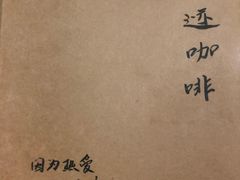 迹咖啡
因为热爱